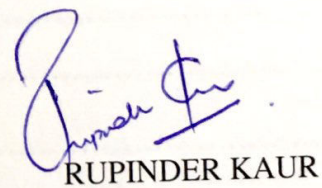 Rupinder Kaur
RUPINDER KAUR